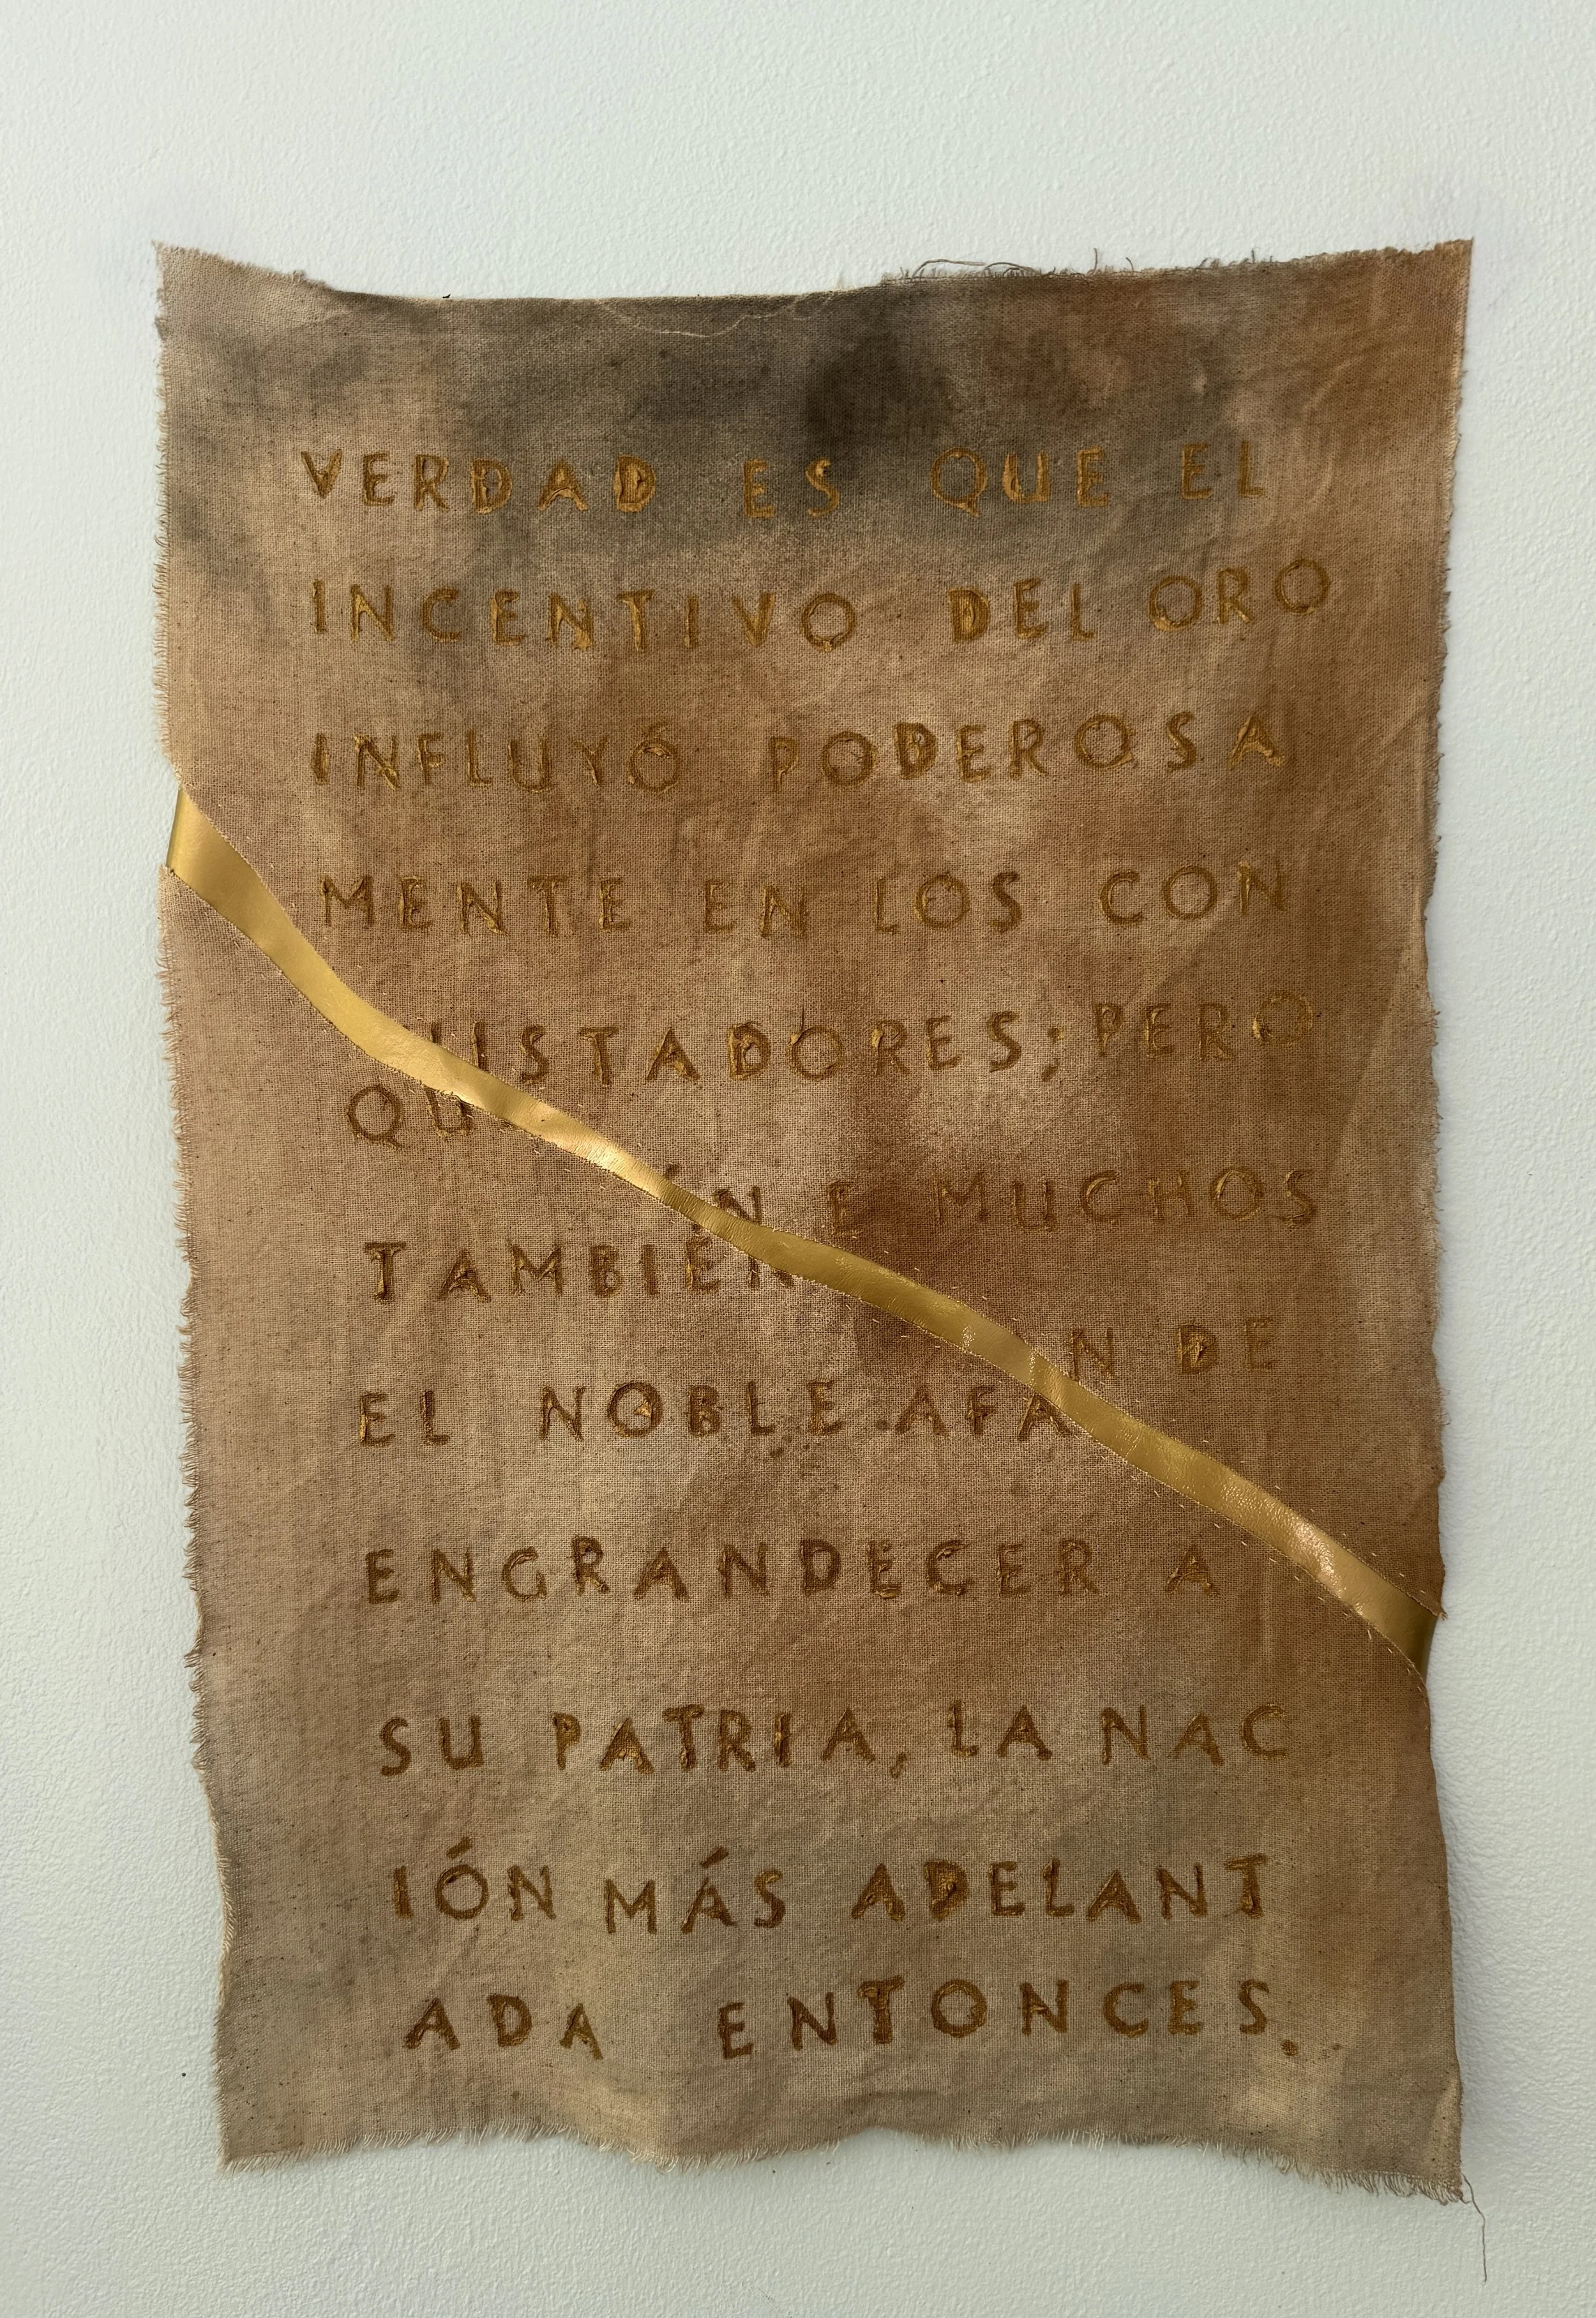 VERDAD ES QUE EL
INCENTIVO DEL ORO
INFLUYÓ PODEROSA
MENTE EN LOS CON
QUISTADORES; PERO
TAMBIÉN E MUCHOS
EL NOBLE AFAN DE
ENGRANDECER A
SU PATRIA, LA NAC
IÓN MÁS ADELANT
ADA ENTONCES.